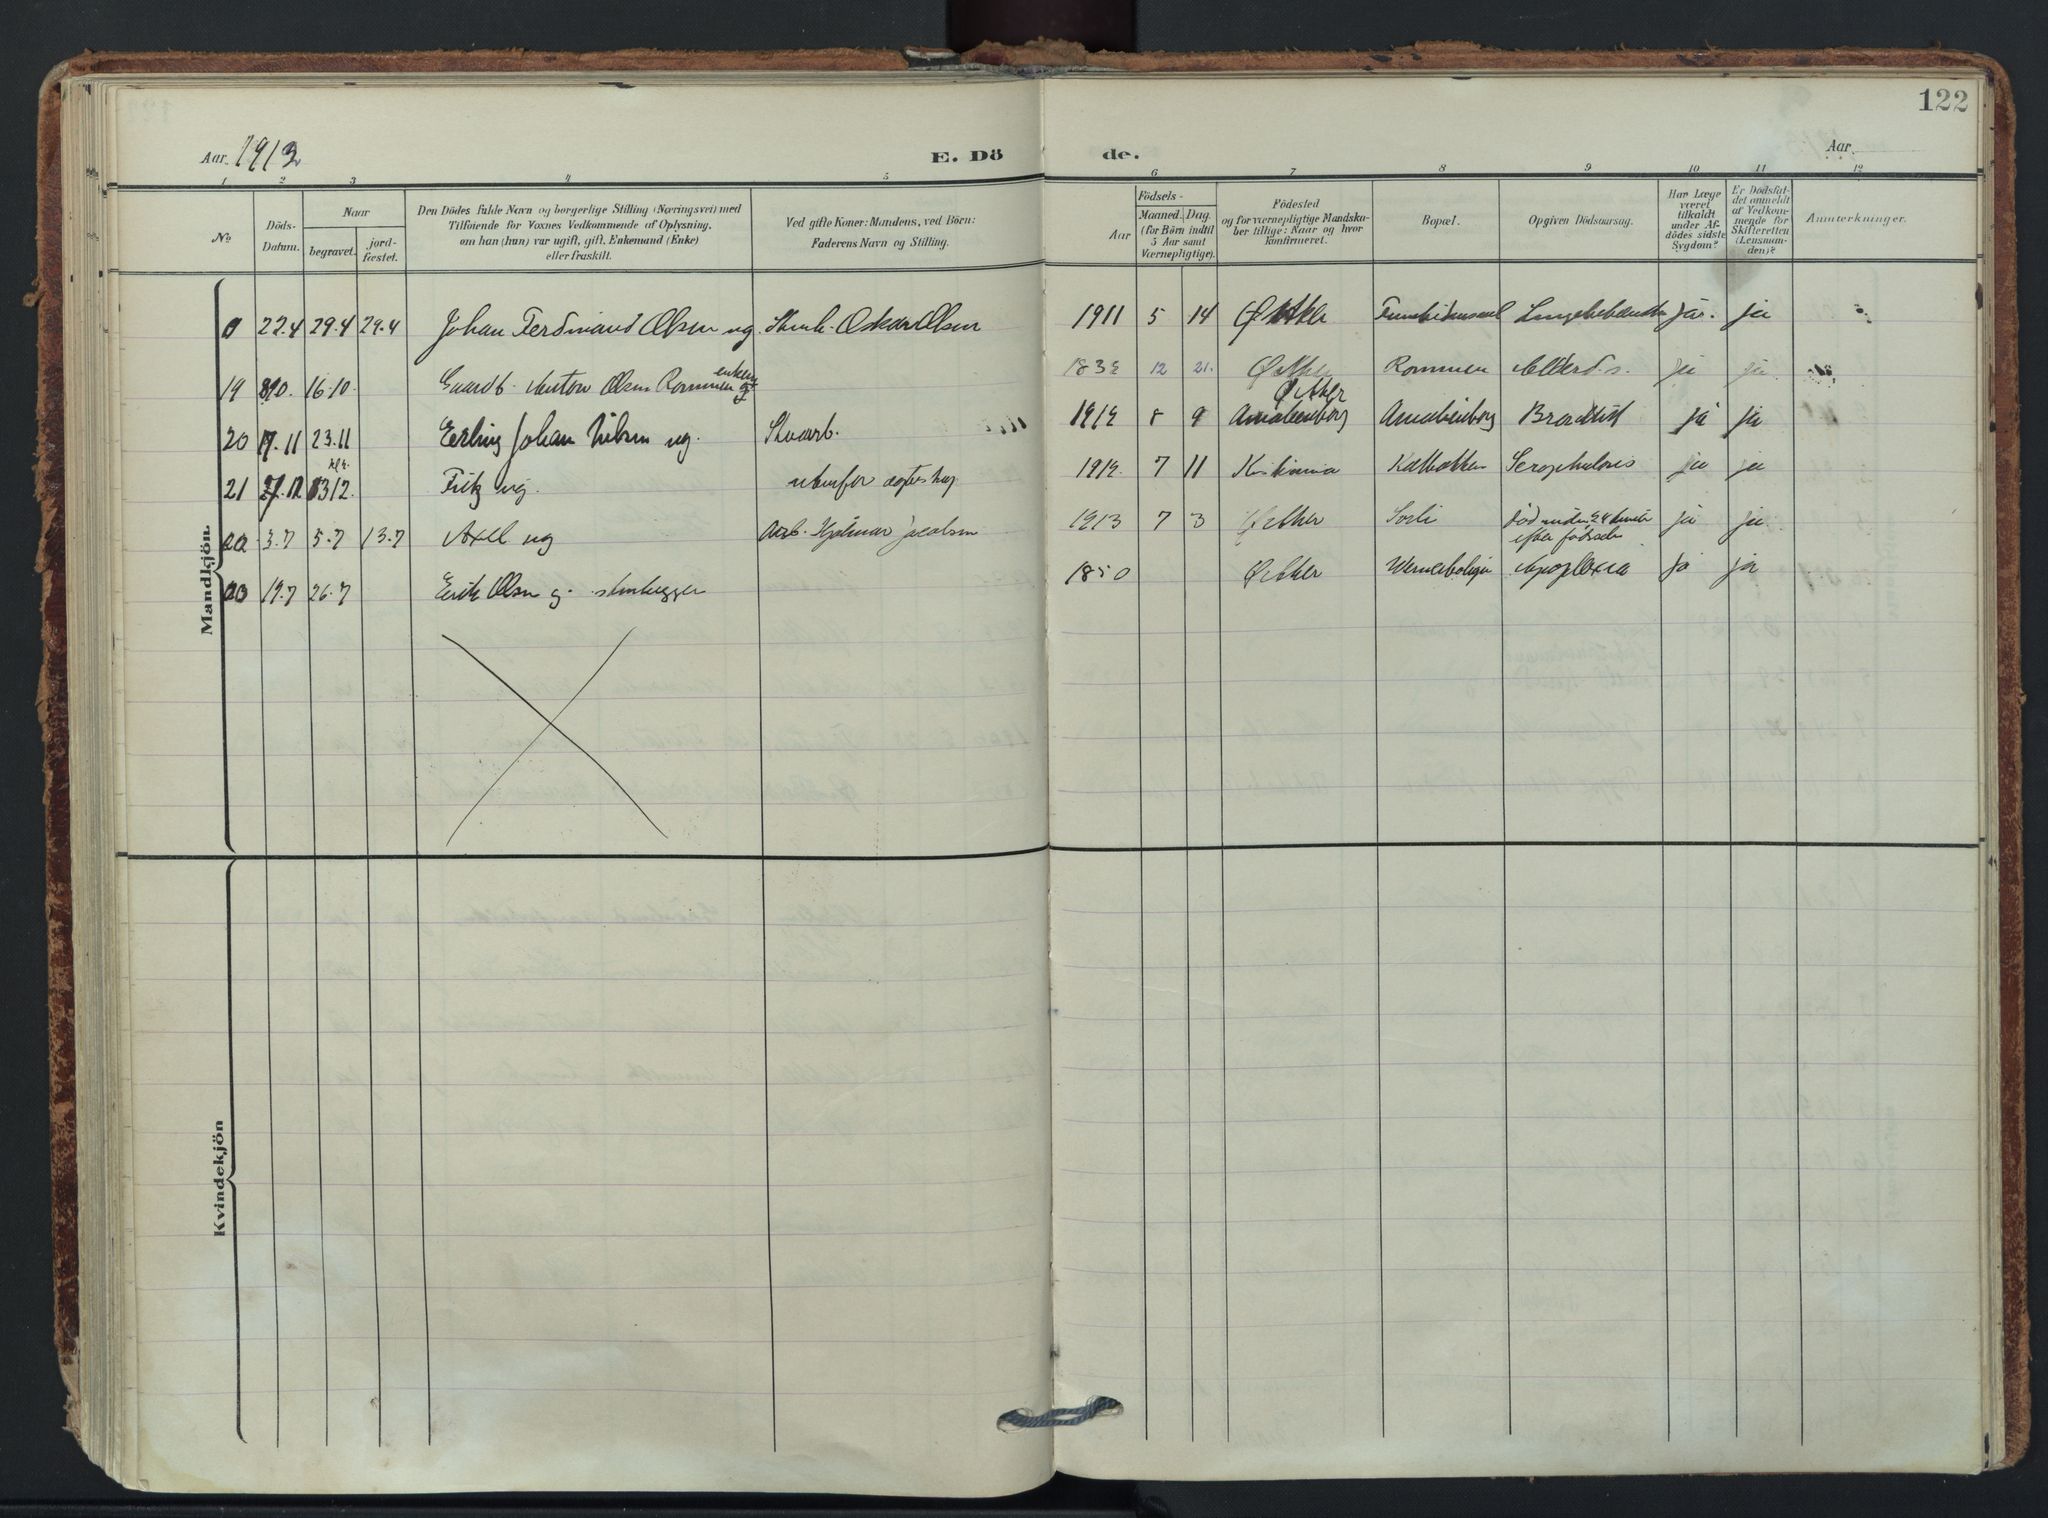 122
Aar. 1913
E. Dö
de.
Aar.
1 2 3 4 5 6 7 8 9 10 11 12
No
Döds-Datum.
Naar
begravet.
jord-fæstet.
Den Dödes fulde Navn og borgerlige Stilling (Næringsvei) med
Tilföiende for Voxnes Vedkommende af Oplysning,
om han (hun) var ugift, gift, Enkemand (Enke)
eller fraskilt.
Ved gifte Koner: Mandens, ved Börn:
Faderens Navn og Stilling.
Födsels-
Aar
Maaned. Dag.
(for Börn indtil
5 Aar samt
Værnepligtige).
Födested
og for værnepligtige Mandska-
ber tillige: Naar og hvor
konfirmeret.
Bopæl.
Opgiven Dödsaarsag.
Har Læge
været
tilkaldt
under Af-
dödes sidste
Sygdom?
Er Dödsfal-
det anmeldt
af Vedkom-
mende for
Skifteretten
(Lensman-
den)?
Anmærkninger.
Mandkjön.
22.4 29.4 29.4 Johan Ferdinand Olsen ug. Oskar Olsen 1911 5 14 Ø Aker ja. ja
19 16.10 Anton Olsen Rommen enkem. 12 21. Ø Aker Rommen Alderd.s. ja ja
20 17.11 23.11 Erling Johan Nilsen ug. 8 9 Ø Aker Amalienborg Amalienborg ja ja
21 Fritz ug. utenfor ægteskap 7 11 Kristiania Kalbakken ja ja
22 3.7 5.7 13.7 Axel ug Arb. Hjalmar Jacobsen 1913 7 3 Ø Aker død under 24 timer
efter fødselen ja ja
23 19.7 26.7 Erik Olsen g. stenhugger 1850 Ø Aker Apoplexia ja ja
Kvindekjön